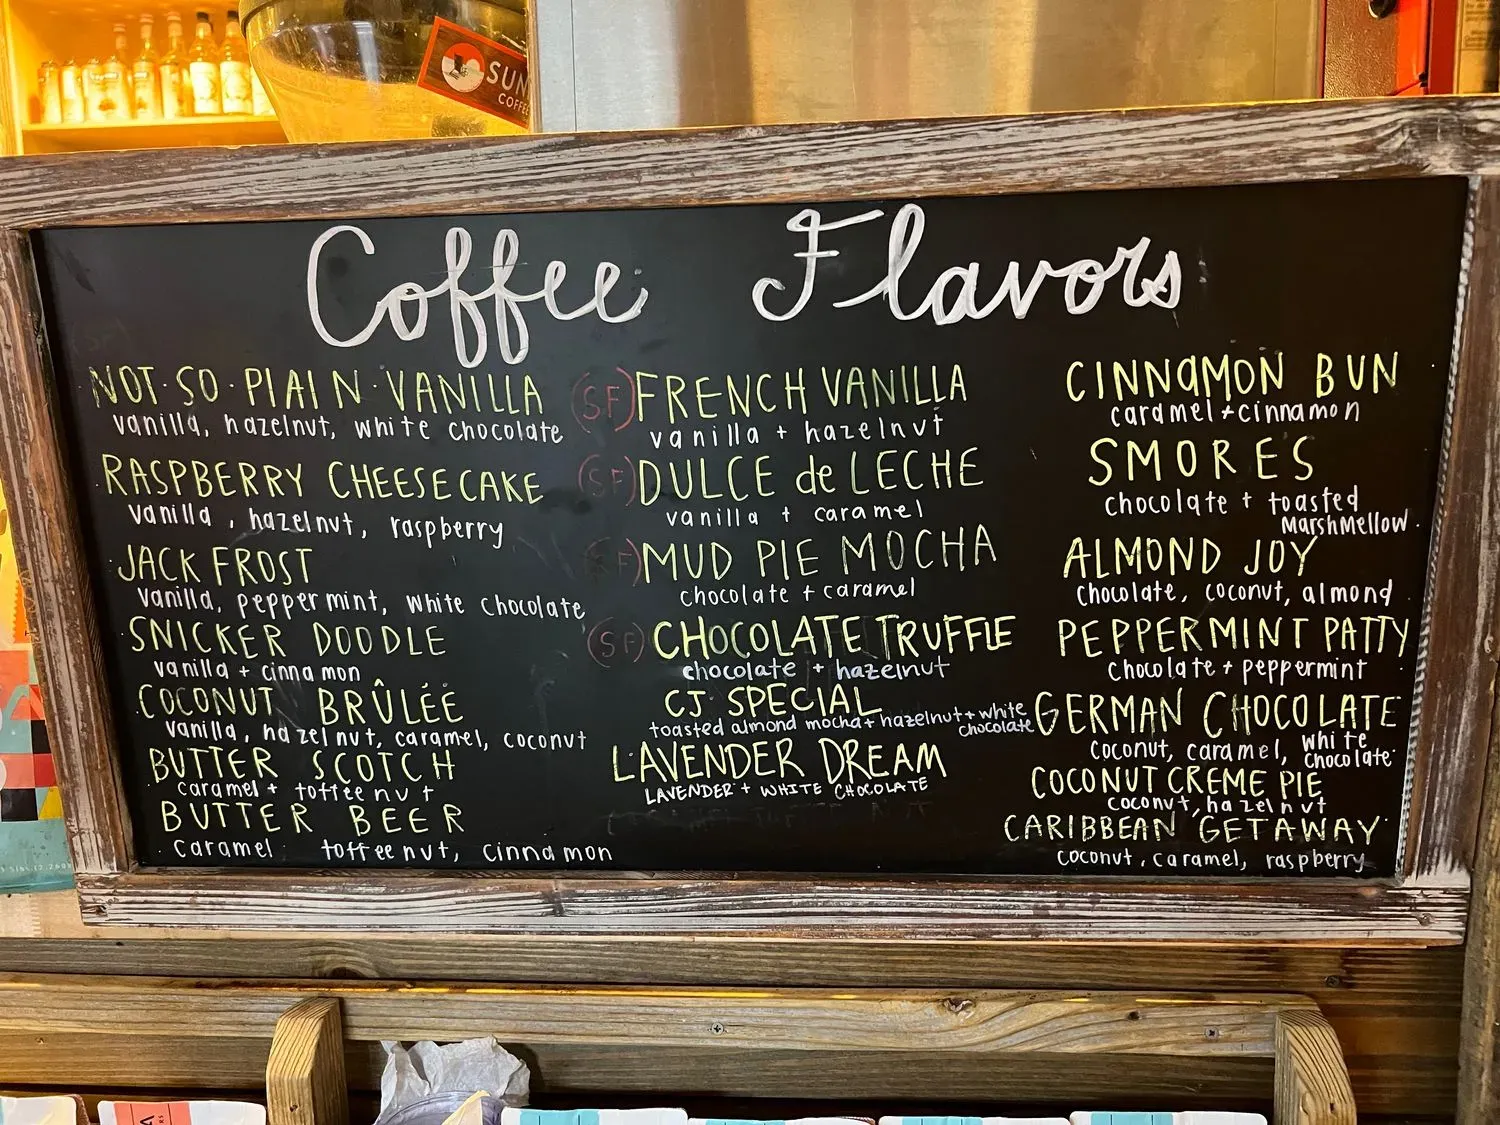 SUN
COFFEE
Coffee Flavors
NOT·SO·PLAIN·VANILLA
vanilla, hazelnut, white chocolate
RASPBERRY CHEESECAKE
vanilla, hazelnut, raspberry
JACK FROST
vanilla, peppermint, white chocolate
SNICKER DOODLE
vanilla + cinnamon
COCONUT BRÛLÉE
vanilla, hazelnut, caramel, coconut
BUTTER SCOTCH
caramel + toffee nut
BUTTER BEER
caramel toffee nut, cinnamon
(SF) FRENCH VANILLA
vanilla + hazelnut
(SF) DULCE de LECHE
vanilla + caramel
MUD PIE MOCHA
chocolate + caramel
(SF) CHOCOLATE TRUFFLE
chocolate + hazelnut
CJ SPECIAL
toasted almond mocha + hazelnut + white
chocolate
LAVENDER DREAM
LAVENDER + WHITE CHOCOLATE
CINNAMON BUN
caramel + cinnamon
SMORES
chocolate + toasted
marshmellow
ALMOND JOY
chocolate, coconut, almond
PEPPERMINT PATTY
chocolate + peppermint
GERMAN CHOCOLATE
coconut, caramel, white
chocolate
COCONUT CREME PIE
coconut, hazelnut
CARIBBEAN GETAWAY
coconut, caramel, raspberry